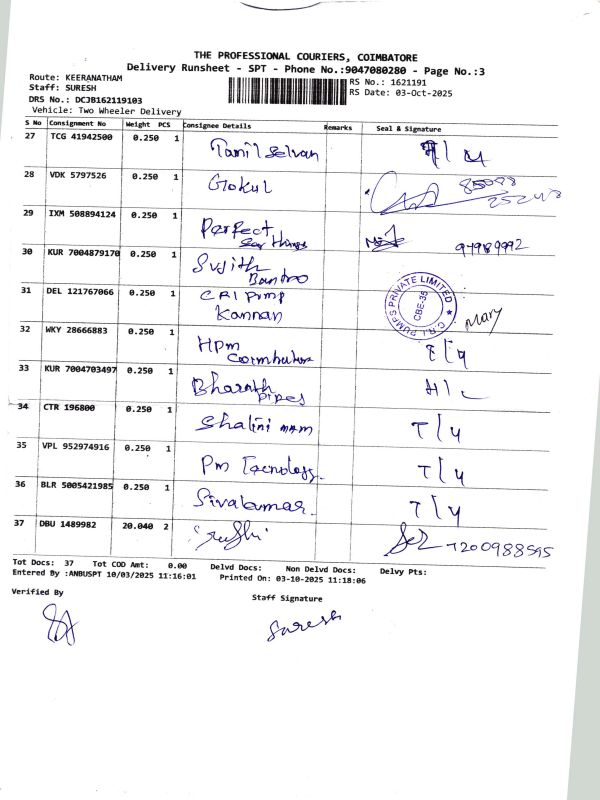 THE PROFESSIONAL COURIERS, COIMBATORE
Delivery Runsheet - SPT - Phone No.:9047080280 - Page No.:3
Route: KEERANATHAM
RS No.: 1621191
Staff: SURESH
RS Date: 03-Oct-2025
DRS No.: DCJB162119103
Vehicle: Two Wheeler Delivery
S No Consignment No Weight PCS Consignee Details Remarks Seal & Signature
27 TCG 41942500 0.250 1 Tamil Selvan
28 VDK 5797526 0.250 1 Gokul
29 IXM 508894124 0.250 1 Perfect
30 KUR 7004879170 0.250 1 Sujith
31 DEL 121767066 0.250 1 CRI Pump
Kannan
C.R.I. PUMPS PRIVATE LIMITED
CBE-35
Mary
32 WKY 28666883 0.250 1 HPM
33 KUR 7004703497 0.250 1 Bharath
Pipes
34 CTR 196800 0.250 1 Shalini mam T/4
35 VPL 952974916 0.250 1 Pm Tecnology. T/4
36 BLR 5005421985 0.250 1 Sivakumar. T/4
37 DBU 1489982 20.040 2 7200988595
Tot Docs: 37 Tot COD Amt: 0.00 Delvd Docs: Non Delvd Docs: Delvy Pts:
Entered By :ANBUSPT 10/03/2025 11:16:01 Printed On: 03-10-2025 11:18:06
Verified By
Staff Signature
Suresh